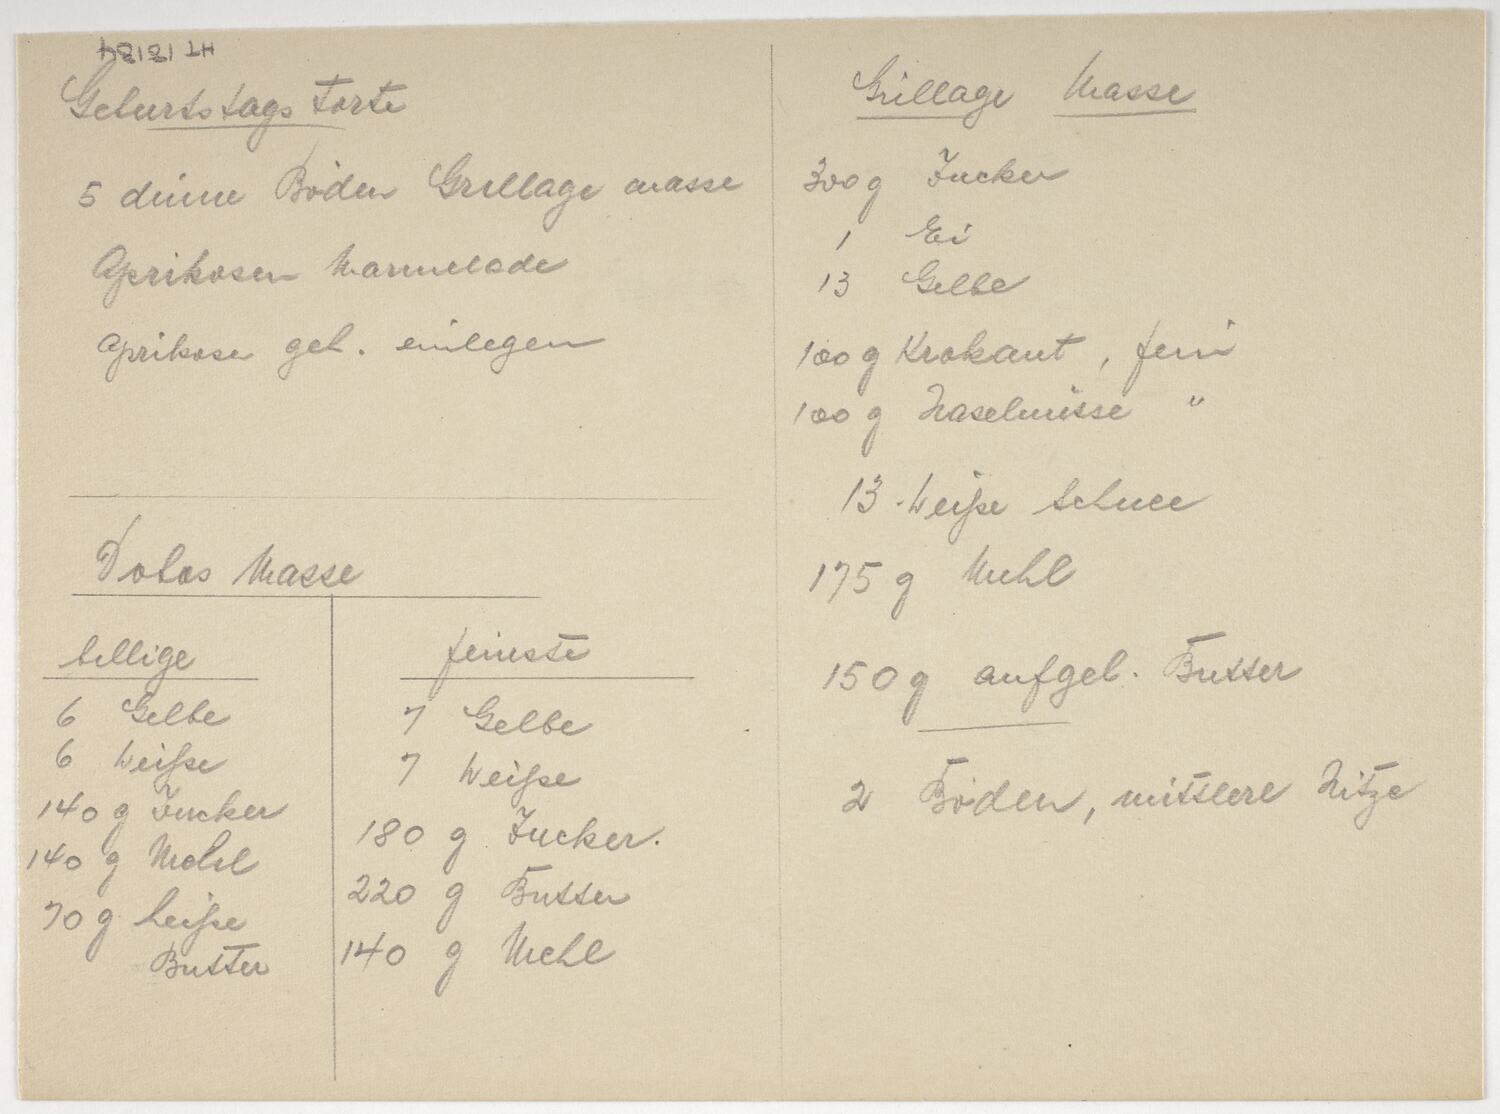 HT 18184
Geburtstags Torte
5 dünne Böden Grillage masse
Aprikosen Marmelade
Aprikosen geb. einlegen
Dobos Masse
billige
6 Gelbe
6 Weiße
140 g Zucker
140 g Mehl
70 g heiße
Butter
feinste
7 Gelbe
7 Weiße
180 g Zucker.
220 g Butter
140 g Mehl
Grillage Masse
300 g Zucker
1 Ei
13 Gelbe
100 g Krokant, fein
100 g Haselnüsse "
13 Weiße Schnee
175 g Mehl
150 g aufgel. Butter
2 Böden, mittlere Hitze